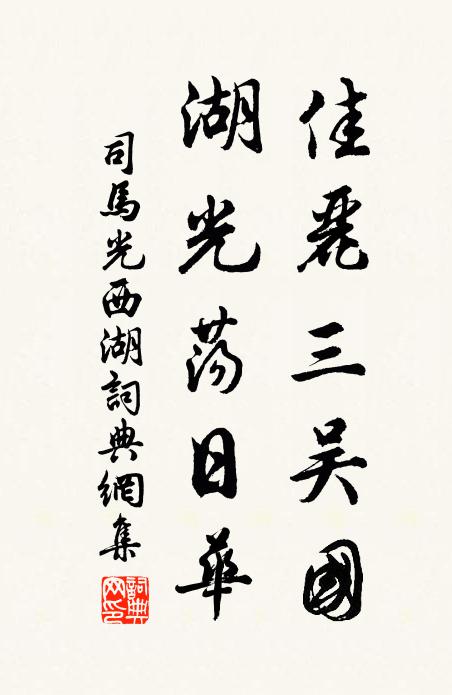 佳麗三吴國
湖光荡日華
司馬光西湖詞典網集
詞典网印